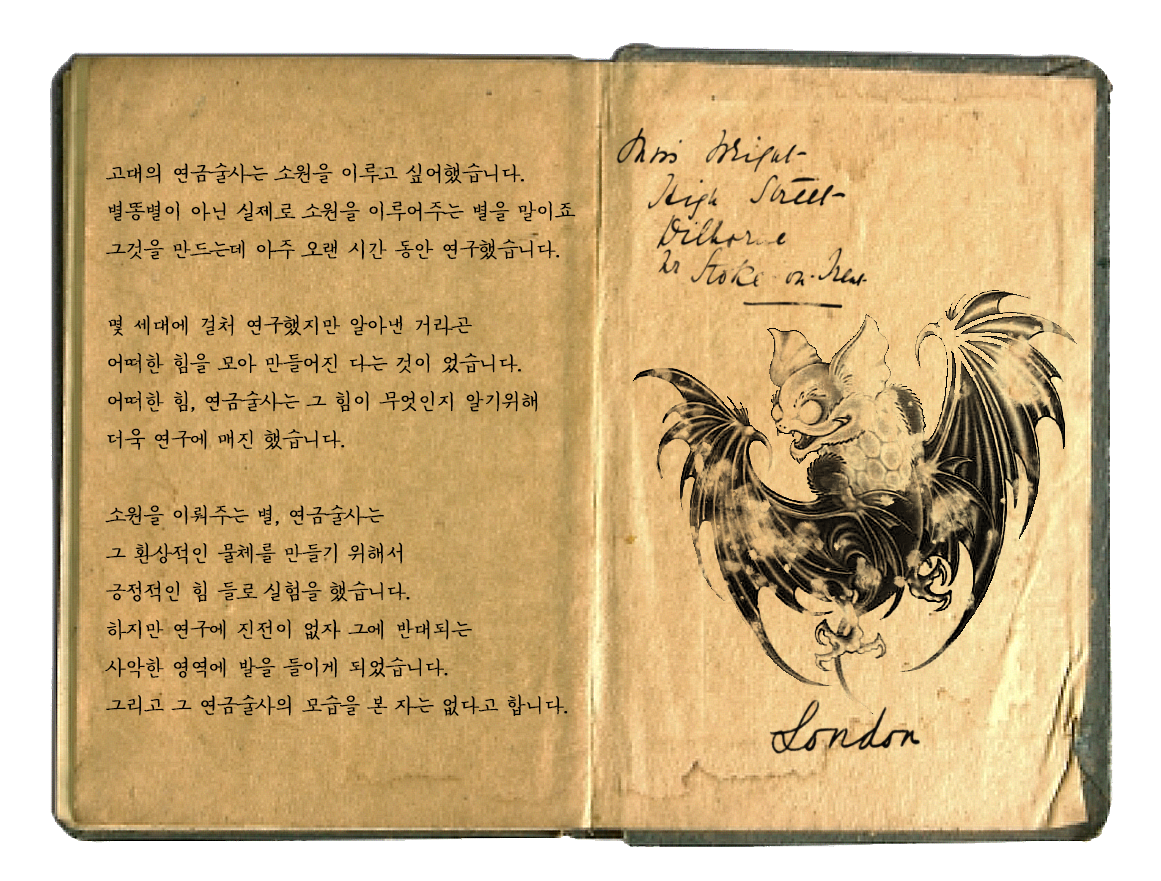 고대의 연금술사는 소원을 이루고 싶어했습니다.
별똥별이 아닌 실제로 소원을 이루어주는 별을 말이죠
그것을 만드는데 아주 오랜 시간 동안 연구했습니다.
몇 세대에 걸처 연구했지만 알아낸 거라곤
어떠한 힘을 모아 만들어진 다는 것이 었습니다.
어떠한 힘, 연금술사는 그 힘이 무엇인지 알기위해
더욱 연구에 매진 했습니다.
소원을 이뤄주는 별, 연금술사는
그 환상적인 물체를 만들기 위해서
긍정적인 힘 들로 실험을 했습니다.
하지만 연구에 진전이 없자 그에 반대되는
사악한 영역에 발을 들이게 되었습니다.
그리고 그 연금술사의 모습을 본 자는 없다고 합니다.
Miss Wright
High Street
Dilhorne
Nr Stoke-on-Trent
London